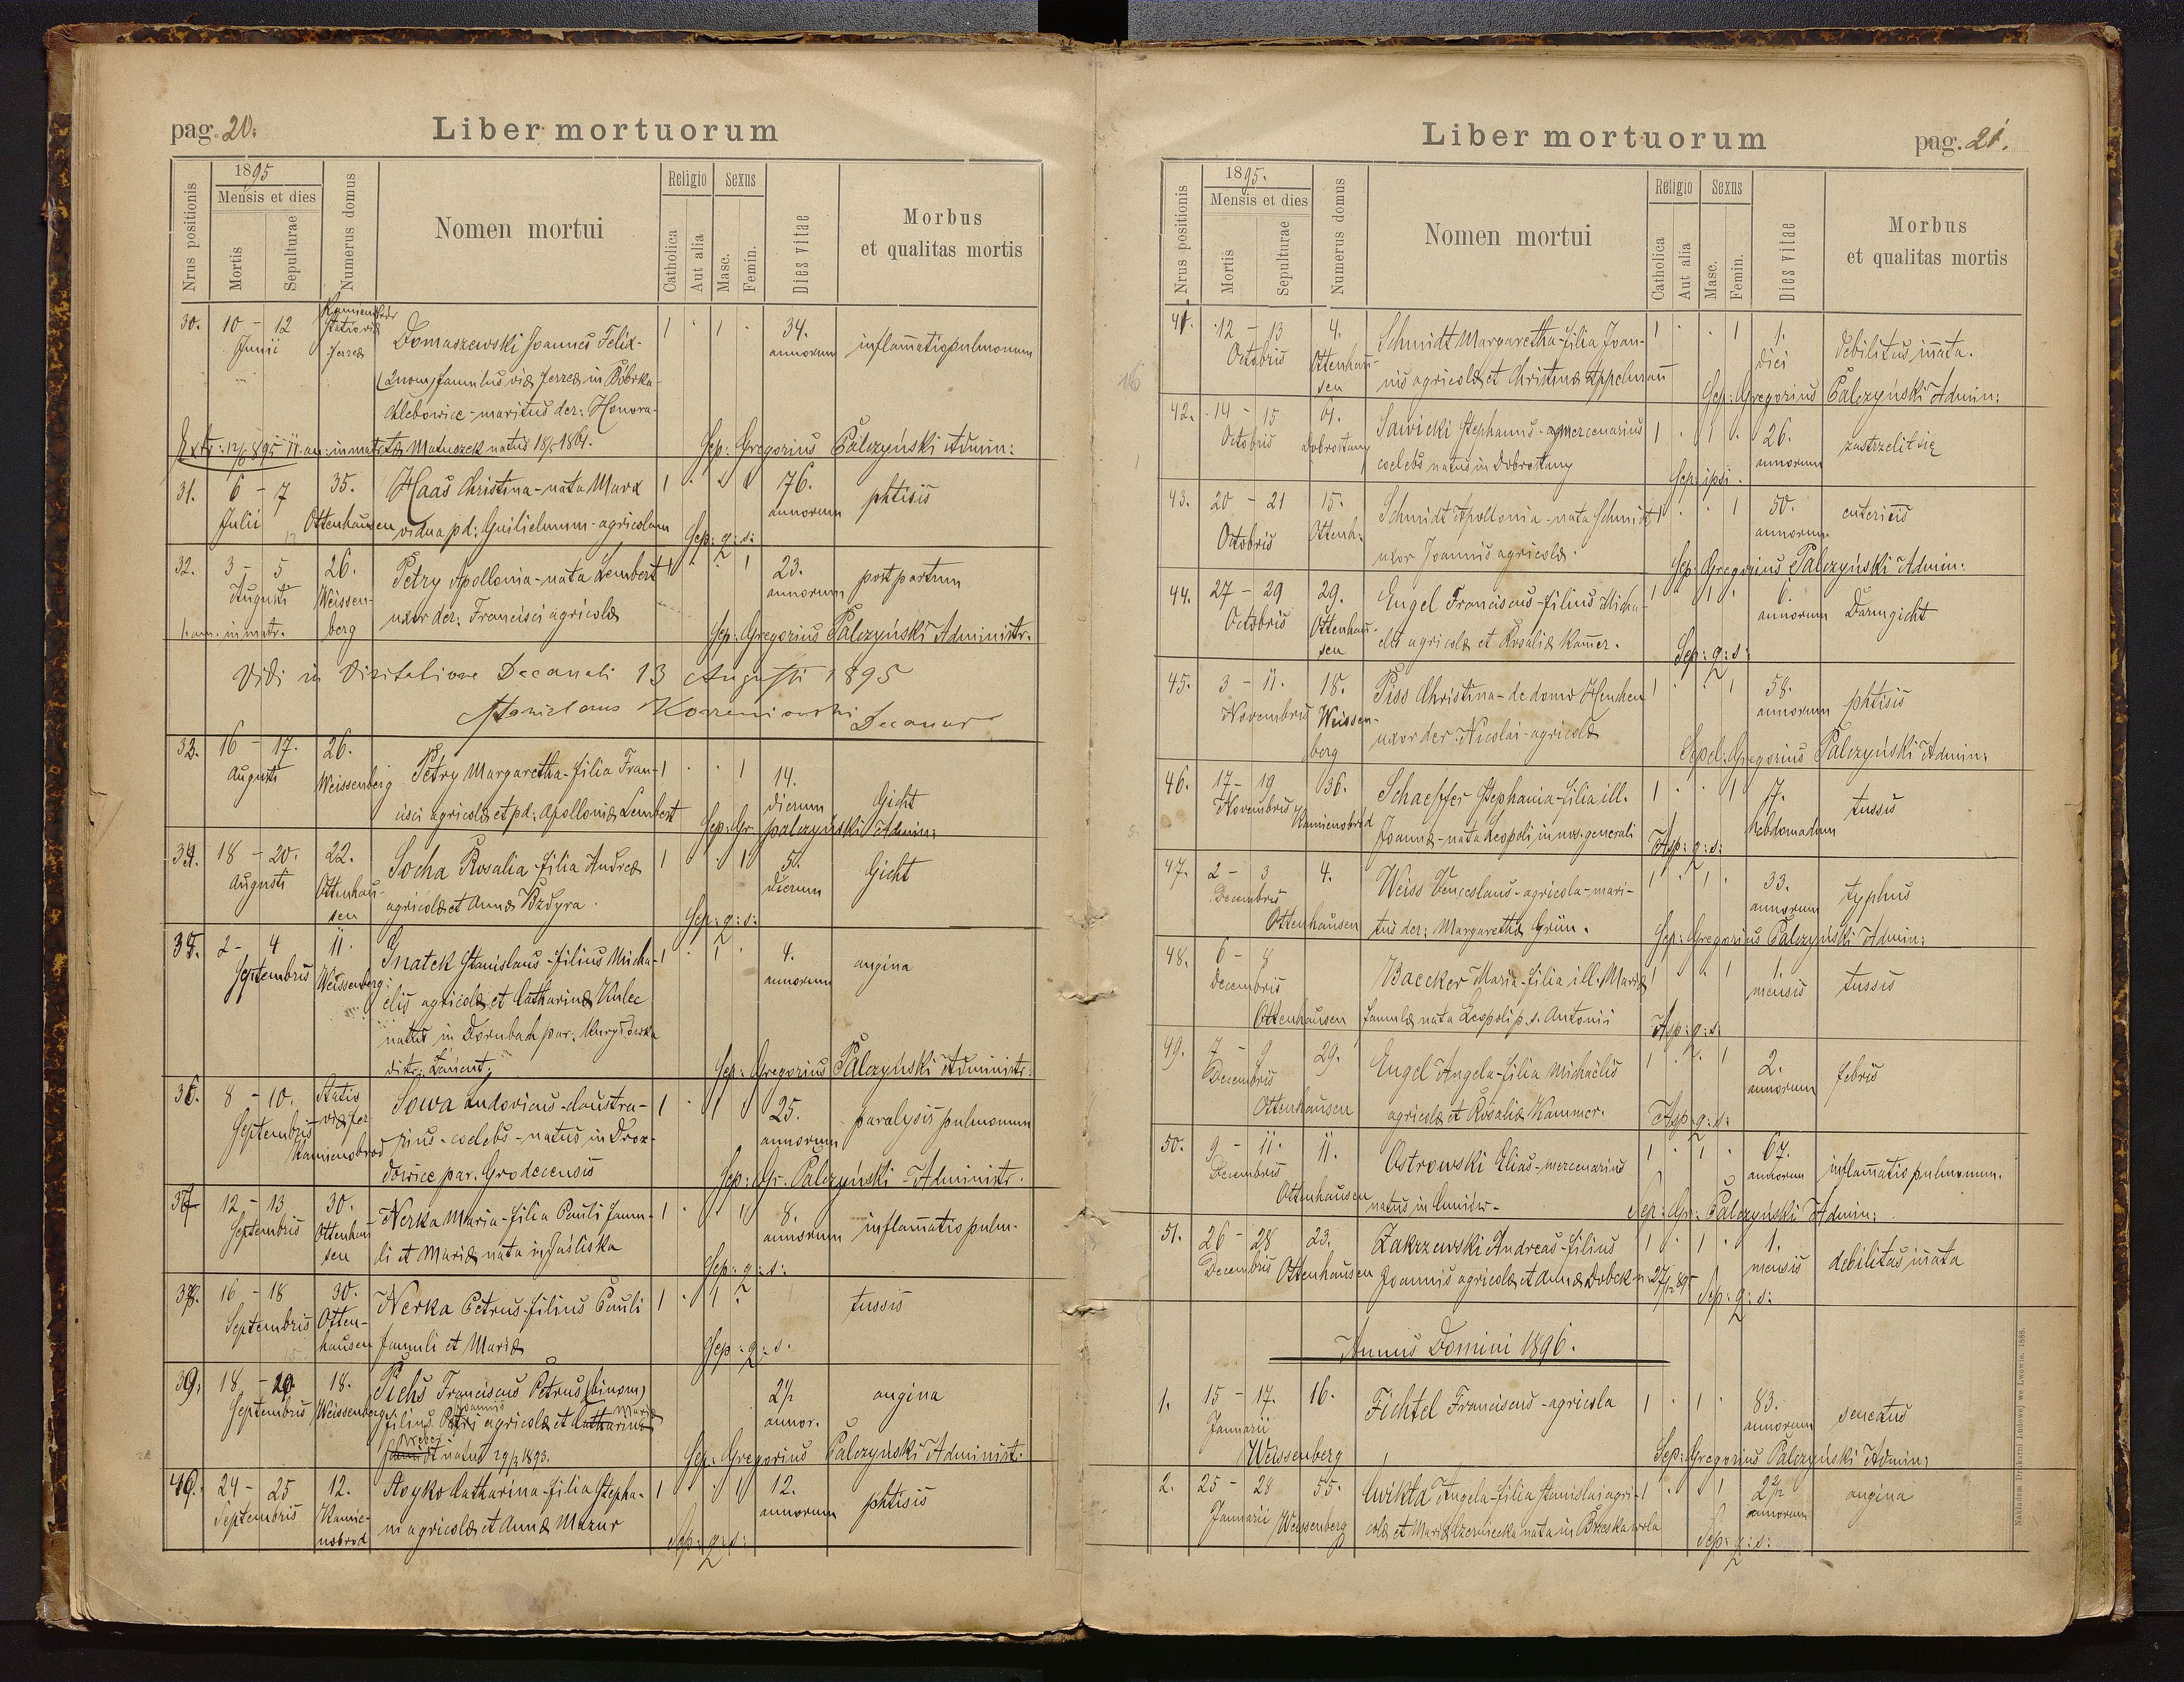 pag. 20.
Liber mortuorum
1895
Nrus positionis
Mensis et dies
Mortis
Sepulturae
Numerus domus
Nomen mortui
Religio
Catholica
Aut alia
Sexus
Masc.
Femin.
Dies vitae
Morbus
et qualitas mortis
30. 10 - 12 Domaszewski Joannes Felix 1 · 1 · 34. inflam̄atio pulmonum
Junii Statio viæ ferreæ annorum
(2 nom) famulus viæ ferreæ in Bóbrka-
Chlebowice - maritus der: Honora-
Matuszek natus 18/5 1861. Sep: Gregorius Palczyński Admin:
31. 6 - 7 35. Haas Christina - nata Marx 1 · · 1 76. phtisis
Julii Ottenhausen vidua pd: Guilielmum - agricolam annorum
Sep: g: s:
32. 3 - 5 26. Petry Apollonia - nata Lembert 1 · · 1 23. post partum
Augusti Weissen- uxor der: Francisci agricolæ annorum
in matr. berg Sep: Gregorius Palczyński Administr.
Vidi in Visitatione Decanali 13 Augusti 1895
Decanus
33. 16 - 17. 26. Petry Margaretha - filia Fran- 1 · · 1 14. Gicht
Augusti Weissenberg cisci agricolæ et pd: Apolloniæ Lembert dierum
Sep: Gr. Palczyński Admin:
34. 18 - 20. 22. Socha Rosalia - filia Andreæ 1 · · 1 5. Gicht
Augusti Ottenhau- agricolæ et Annæ Bzdyra. dierum
sen Sep: g: s:
35. 2 - 4 11. Gnatek Stanislaus - filius Micha- 1 · 1 · 4. angina
Septembris Weissenberg: elis agricolæ et Catharinæ Kulec annorum
natus in Dornbach par:
distr: Łańcut; Sep: Gregorius Palczyński Administr:
36. 8 - 10. Statio Sowa Ludovicus - claustra- 1 · 1 · 25. paralysis pulmonum
Septembris viæ fer rius - coelebs - natus in Droz- annorum
Kamienobrod dowice par. Grodecensis Sep: Gr. Palczyński - Administr.
37 12 - 13 30. Nerka Maria - filia Pauli famu- 1 · · 1 8. inflam̄atio pulm.
Septembris Ottenhau li et Mariæ nata in Jaśliska annorum
sen Sep: g: s:
38. 16 - 18 30. Nerka Petrus - filius Pauli 1 · 1 · tussis
Septembris Otten- famuli et Mariæ
hausen Sep: g: s.
39. 18 - 20. 18. Piehs Franciscus Petrus (binom) 2½ angina
Septembris Weissenberg filius Petri Joannis agricolæ et Catharinæ Mariæ annor.
natus 29/3 1893. Sep: Gregorius Palczyński Administ.
40. 24 - 25 12. Stoyko Catharina - filia Stepha- 1 · · 1 12. phtisis
Septembris Kamie- ni agricolæ et Annæ Mazur annorum
nobrod Sep: g: s:
Liber mortuorum
pag. 21.
1895.
Nrus positionis
Mensis et dies
Mortis
Sepulturae
Numerus domus
Nomen mortui
Religio
Catholica
Aut alia
Sexus
Masc.
Femin.
Dies vitae
Morbus
et qualitas mortis
41. 12 - 13 4. Schmidt Margaretha - filia Joan- 1 · · 1 1. debilitas in̄ata.
Octobris Ottenhau- nis agricolæ et Christinæ Appelman̄ diei
sen Sep: Gregorius Palczyński Admin:
42. 14 - 15 Sawicki Stephanus - mercenarius 1 · 1 · 26. zastrzelił się
Octobris Dobrostany coelebs natus in Dobrostany annorum
Sep: ipsi.
43. 20 - 21 15. Schmidt Apollonia - nata Schmidt 1 · · 1 50. enteritis
Octobris Ottenh: uxor Joannis agricolæ. annorum
Sep: Gregorius Palczyński Admin.
44. 27 - 29 29. Engel Franciscus - filius Micha- 1 · 1 · 6. Darmgicht
Octobris Ottenhau- elis agricolæ et Rosaliæ Kam̄er. annorum
sen Sep: g: s:
45. 3 - 11. 18. Piss Christina - de domo Henhen 1 · · 1 58. phtisis
Novembris Weissen- uxor der: Nicolai - agricolæ annorum
berg Sepel: Gregorius Palczyński Admin:
46. 17 - 19 36. Schaeffer Stephania - filia ill. 1 · · 1 7. tussis
Novembris Kamienobród Joannæ - nata Leopoli in nos. generali hebdomadum
Asp: g: s:
47. 2 - 3 4. Weiss Venceslaus - agricola - mari- 1 · 1 · 33. typhus
Decembris Ottenhausen tus der: Margarethæ Grün. annorum
Sep: Gregorius Palczyński Admin:
48. 6 - 8 Baecker Maria - filia ill. Mariæ 1 · · 1 1. tussis
Decembris Ottenhausen famulæ nata Leopoli p. s. Antonii mensis
Asp: g: s:
49. 7 - 9 29. Engel Angela - filia Michaëlis 1 · · 1 2. febris
Decembris Ottenhausen agricolæ et Rosaliæ Kammer. annorum
Asp: g: s:
50. 9 - 11. 11. Ostrowski Elias - mercenarius 1 · 1 · 67. inflam̄atio pulmonum.
Decembris Ottenhausen natus in annorum
Sep: Gr: Palczyński Admin:
51. 26 - 28 23. Zakrzewski Andreas - filius 1 · 1 · 1. debilitas in̄ata
Decembris Ottenhausen Joannis agricolæ et Annæ Dobek mensis
Sep: g: s:
Annus Domini 1896.
1. 15 - 17. 16. Fichtel Franciscus - agricola 1 · 1 · 83. senectus
Januarii Weissenberg annorum
Sep: Gregorius Palczyński Admin:
2. 25 - 28 55. Ćwikła Angela - filia Stanislai agri- 1 · · 1 2½ angina
Januarii Weissenberg colæ et Mariæ Czerniecka nata in Brzeska wola annorum
Sep: g: s:
Nakładem Drukarni Ludowej we Lwowie. 1888.